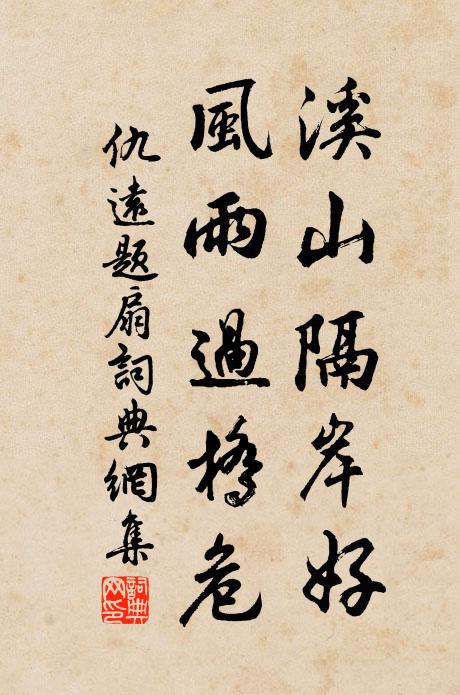 溪山隔岸好
風雨過橋危
仇遠題扇詞典網集
詞典網印